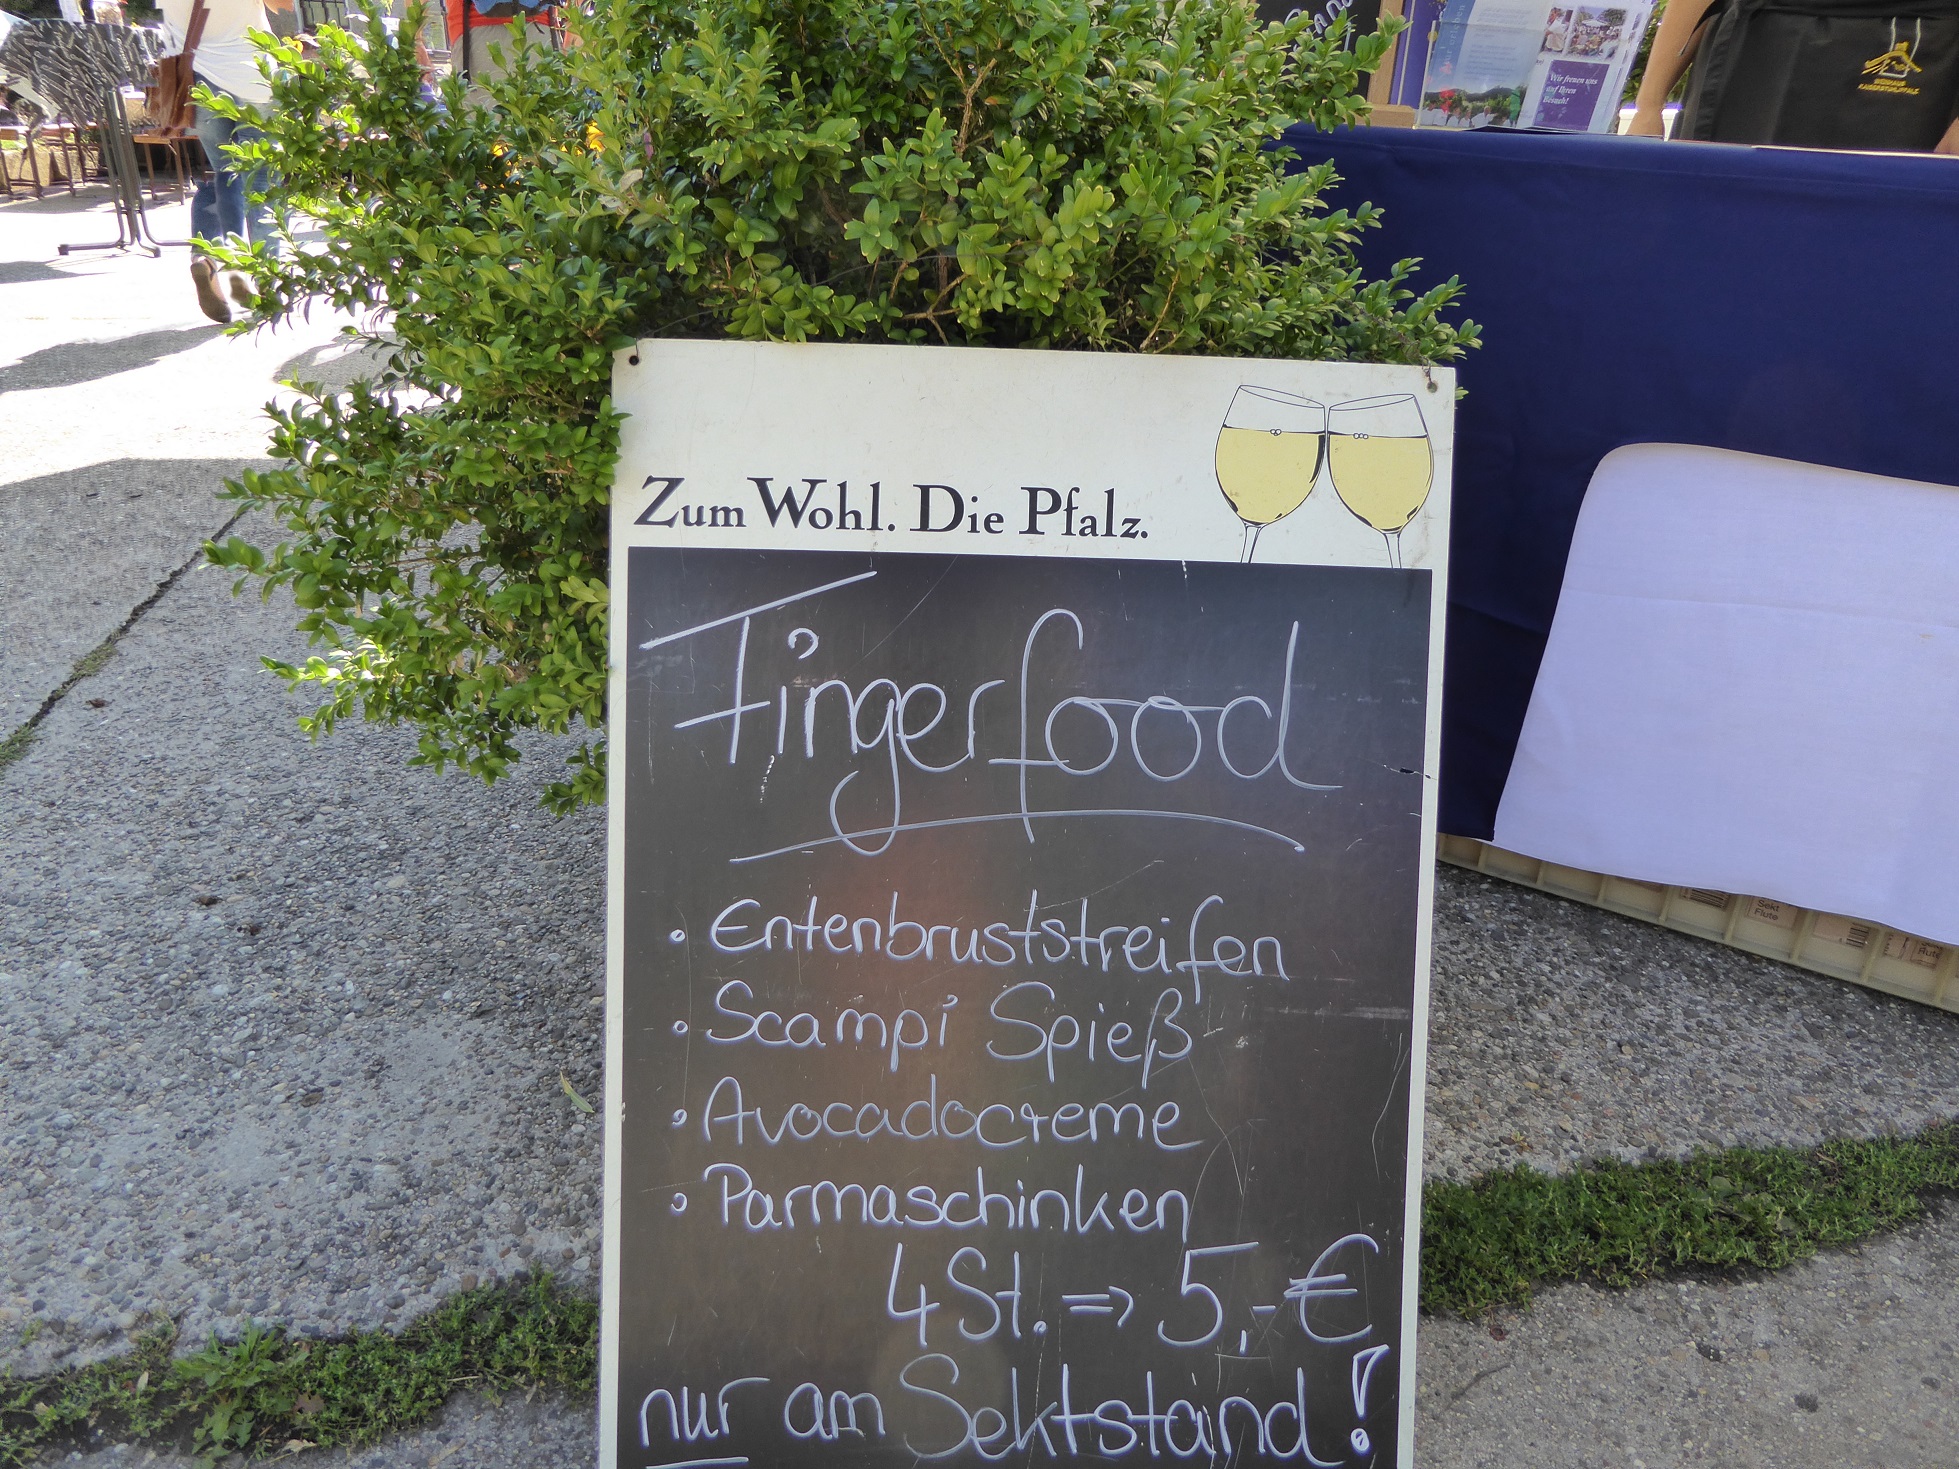 Wir freuen uns
auf Ihren
Besuch!
Zum Wohl. Die Pfalz.
Fingerfood
• Entenbruststreifen
• Scampi Spieß
• Avocadocreme
• Parmaschinken
4 St. => 5,- €
nur am Sektstand!
Sekt
Flute